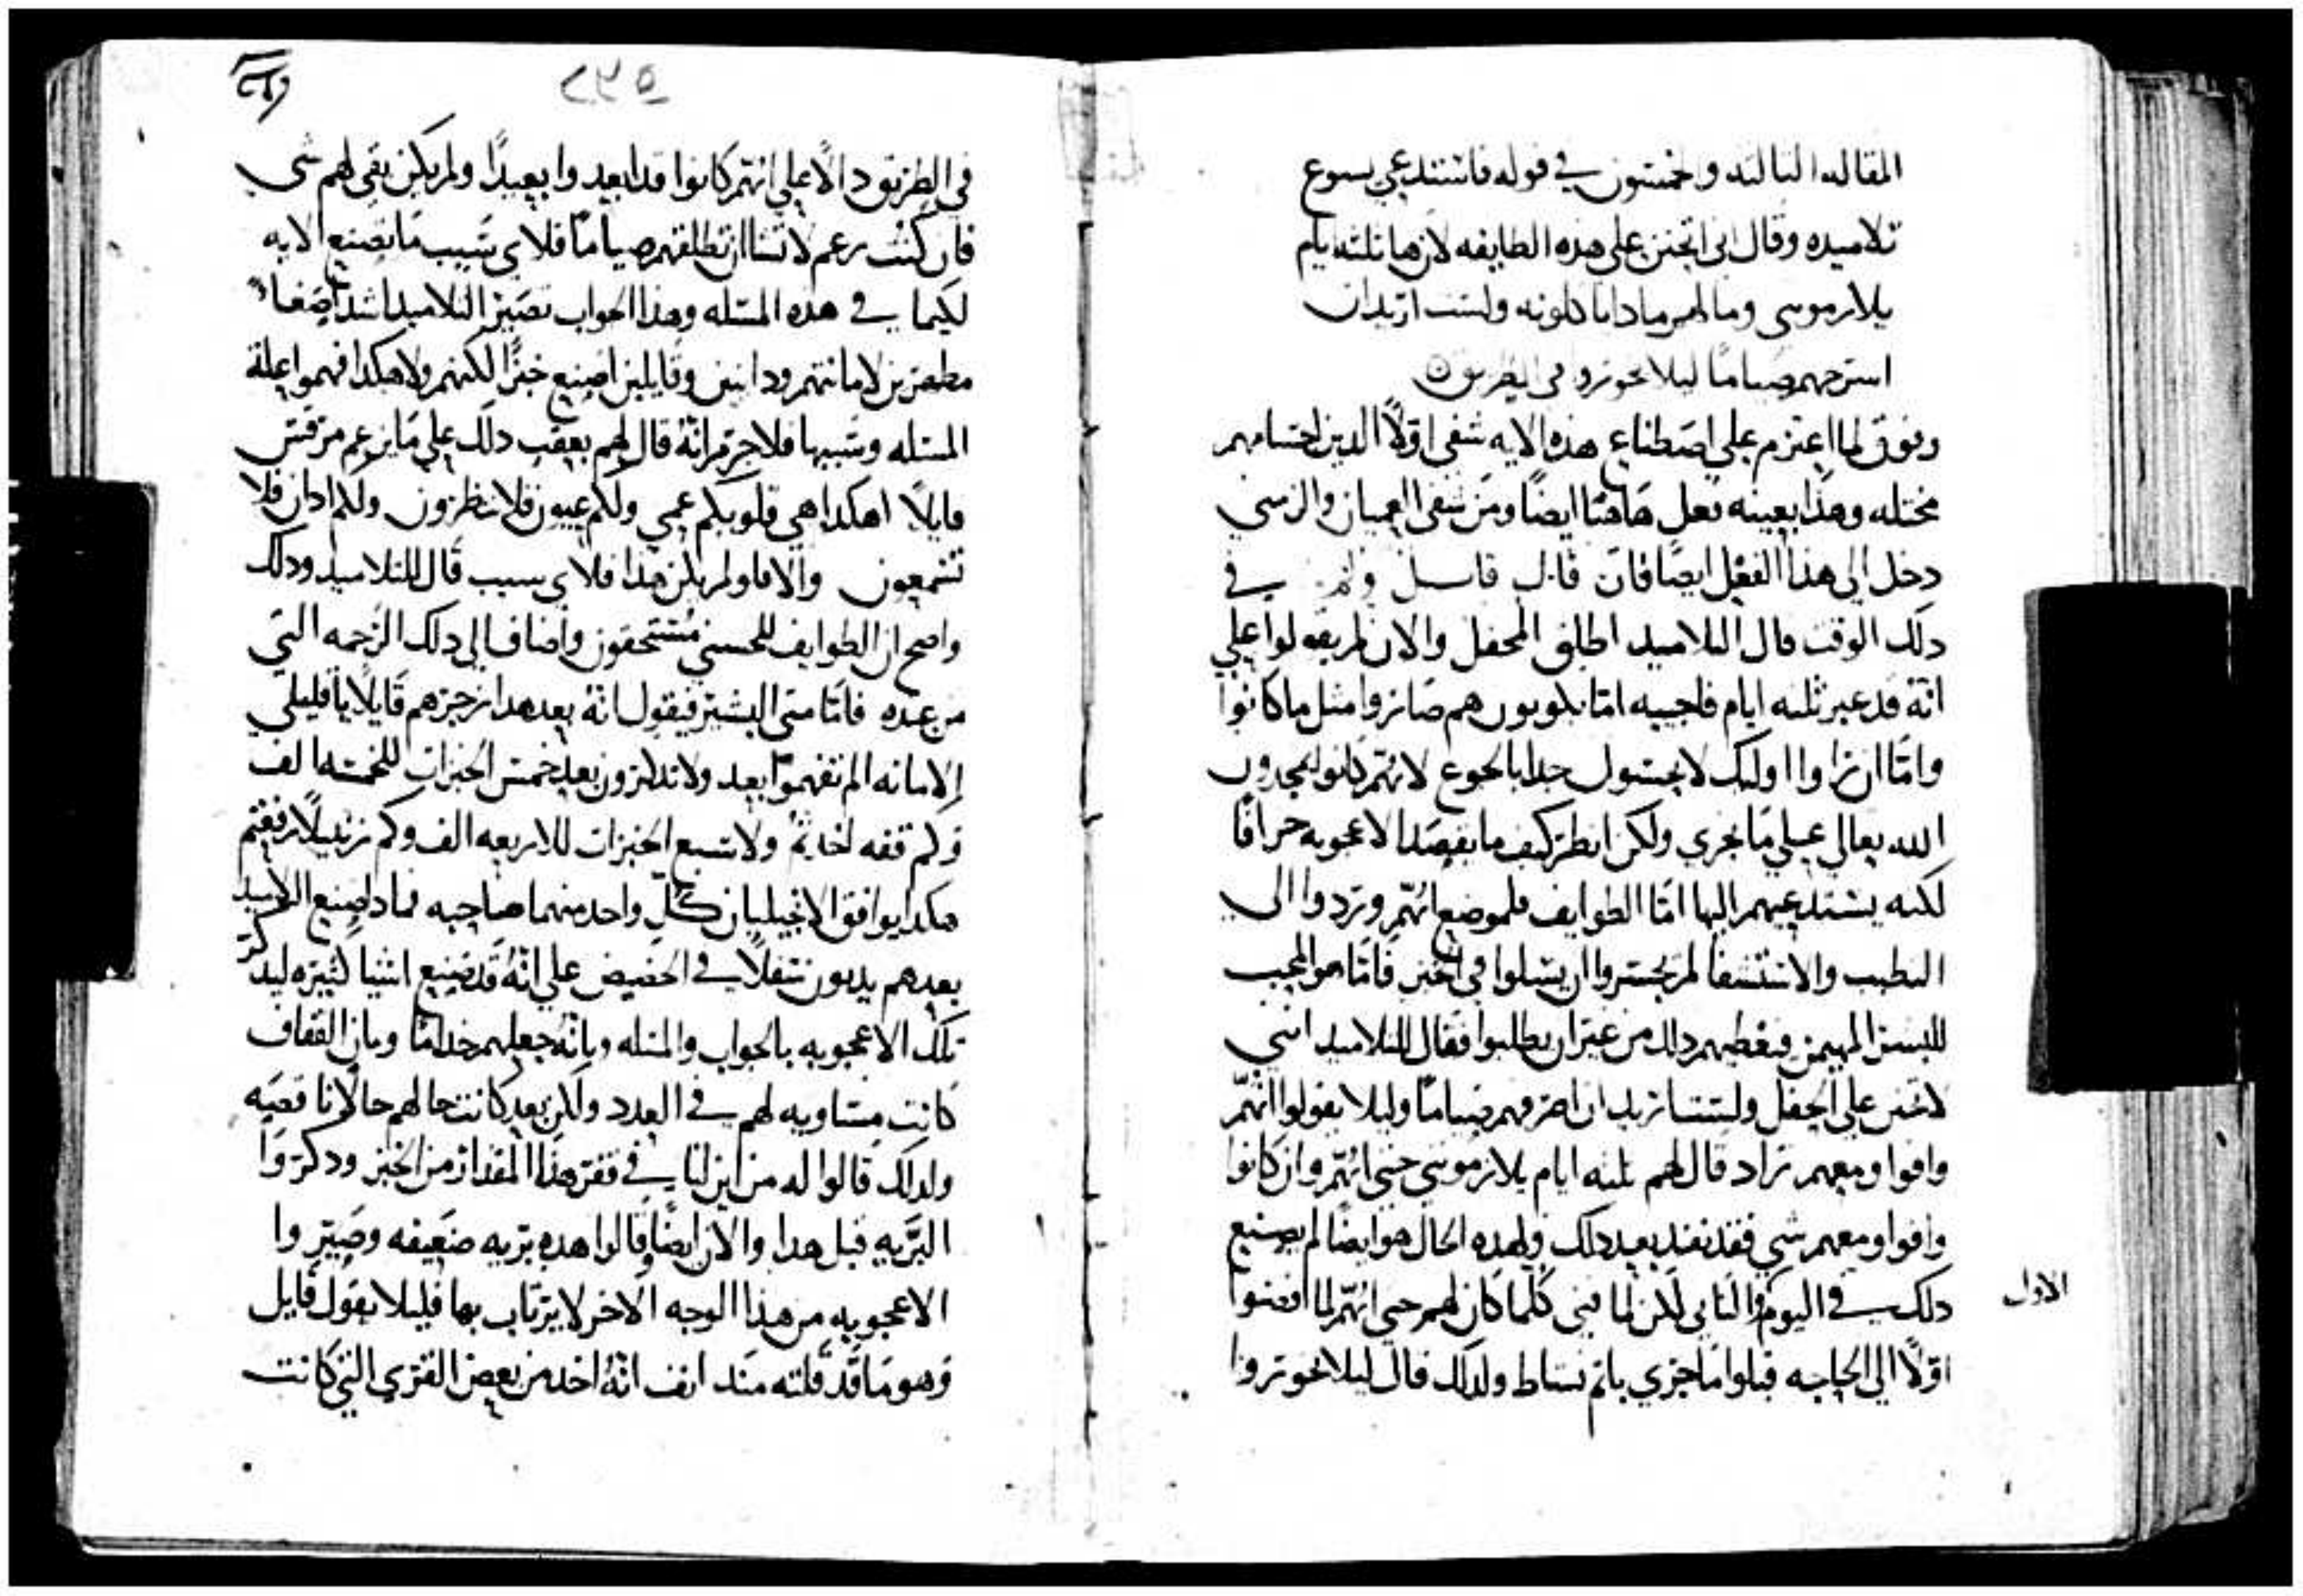 المقاله الثالثه وخمسون في قوله فاستدعي يسوع
تلاميده وقال اني اتحنن علي هذه الطايفه لان ها ثلثه ايام
يلازموني وما لهم مادا ياكلونه ولست اريد ان
اسرحهم صياما ليلا يخوروا في الطريق
وفوق لما اعتزم علي اصطناع هذه الايه شفي اولًا الدين اجسامهم
مختله وهذا بعينه فعل هاهنا ايضًا ومن شفي العميان والزمني
دخل الي هذا الفعل ايضًا فان قال قايل ولم في
دلك الوقت قال التلاميد اطلق المحفل والان لم يقولوا علي
انه قد عبر ثلثه ايام فاجيبه اما يكونون هم صاروا مثل ما كانوا
واما ان راوا اوليك لا يحسون جدا بالجوع لانهم كانوا يمجدون
الله تعالي علي ما يجري ولكن انظر كيف ما يقصد الاعجوبه جرافًا
لكنه يستدعيهم اليها اما الطوايف فلموضع انهم وردوا الي
التطبب والاستشفا لم يجسروا ان يسلوا في الخبز فاما هو المحب
للبشر المهيمن فيعطيهم دلك من غير ان يطلبوا فقال للتلاميد انني
لاتحنن علي الجفل ولستُ اريد ان اصرفهم صيامًا وليلا يقولوا انهم
وافوا ومعهم زاد قال لهم ثلثه ايام يلازموني حتي انهم وان كانوا
وافوا ومعهم شي فقد نفد بعد دلك ولهذه الحال هو ايضًا لم يصنع
دلك في اليوم والثاني لكن لما فني كلما كان لهم حتي انهم لما افضوا
الاول
اولًا الي الحاجه قبلوا ما جري باتم نشاط ولدلك قال ليلا يخوروا
٢٣٥
في الطريق دالًا علي انهم كانوا قد ابعدوا بعيدًا ولم يكن بقي لهم شي
فان كنت زعم لا تشا ان تطلقهم صيامًا فلاي سبب ما تصنع الايه
لكيما في هذه المسله وهذا الجواب تصير التلاميد اشد اصغاءً
مظهرين لامانتهم ودانين وقايلين اصنع خبزًا لكنهم ولا هكدا فهموا علة
المسله وسببها فلا جرم انه قال لهم بعقب دلك علي ما يزعم مرقس
قايلًا اهكدا هي قلوبكم عمي ولكم عيون فلا تنظرون ولكم ادان فلا
تسمعون والا فاولم يكن هذا فلاي سبب قال للتلاميد ودلك
واضح ان الطوايف للحسني مستحقون واضاف الي دلك الرحمه التي
من عنده فاما متي البشير فيقول انه بعد هدا زجرهم قايلًا يا قليلي
الامانه الم تفهموا بعد ولا تدكرون بعد خمس الخبزات للخمسه الف
وكم قفه اخدتم ولا سبع الخبزات للاربعه الف وكم زنبيلًا رفعتم
هكدا يوافق الانجيليان كل واحد منهما صاحبه فمادا صنع التلاميد
بعدهم يدبون سفلًا في الحضيض علي انه قد صنع اشيا كثيره ليدكر
تلك الاعجوبه بالجواب والمسله وبانه جعلهم خدامًا وبان القفاف
كانت مساويه لهم في العدد ولكن بعد كانت حالهم حالًا ناقصه
ولدلك قالوا له من اين لنا في قفر هذا المقدار من الخبز ودكروا
البريه قبل هدا والان ايضًا قالوا هده بريه ضعيفه وصيروا
الاعجوبه من هذا الوجه الاخر لا يرتاب بها فليلا يقول قايل
وهو ما قد قلته مند انف انه اخد من بعض القري التي كانت